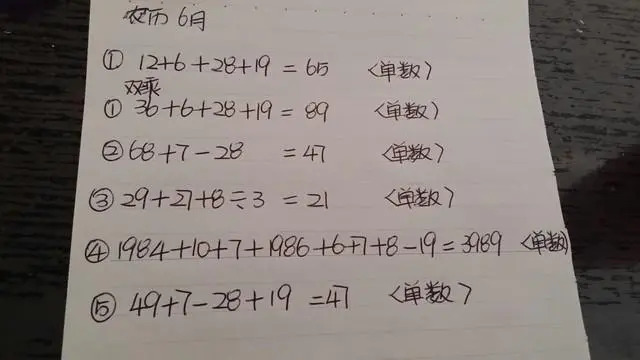 农历6月
① 12+6+28+19=65 〈单数〉
双乘
① 36+6+28+19=89 〈单数〉
② 68+7-28 =47 〈单数〉
③ 29+27+8÷3=21 〈单数〉
④ 1984+10+7+1986+6+7+8-19=3989 〈单数〉
⑤ 49+7-28+19=47 〈单数〉